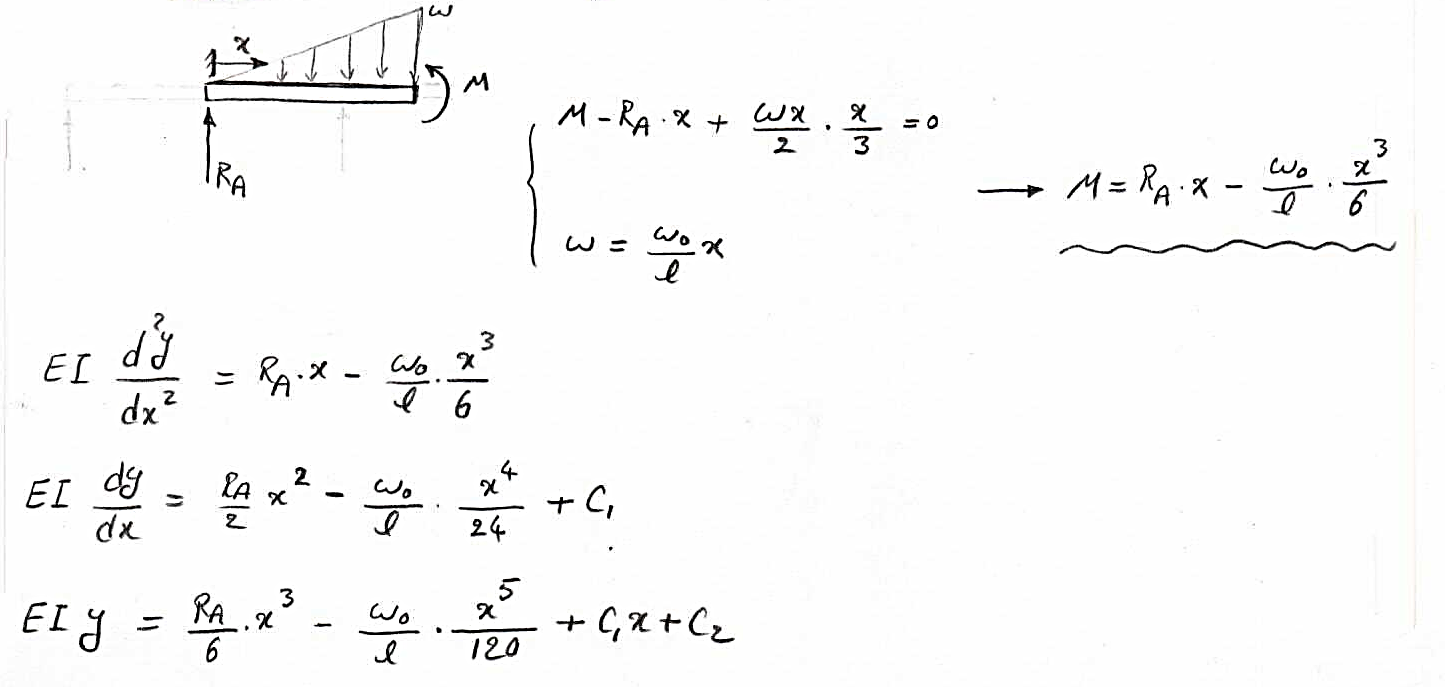 ω
x
M
R_A
M - R_A · x + ωx/2 · x/3 = 0
ω = ω₀/l x
→ M = R_A · x - ω₀/l · x³/6
EI d²y/dx² = R_A · x - ω₀/l · x³/6
EI dy/dx = R_A/2 x² - ω₀/l · x⁴/24 + C₁
EI y = R_A/6 · x³ - ω₀/l · x⁵/120 + C₁x + C₂